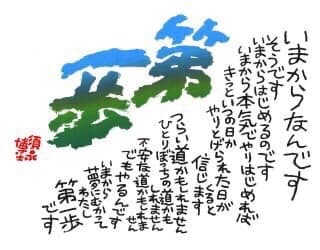 第一歩
いまからなんです
そうです
いまからはじめるのです
いまから本気でやりはじめれば
きっといつの日か
やりとげられた日が
くると
信じます
つらい道かもしれません
ひとりぼっちの道かも
しれません
不安な道かもしれません
でもやるんです
いまから
夢にむかって
わたし
第一歩
です
須永博士